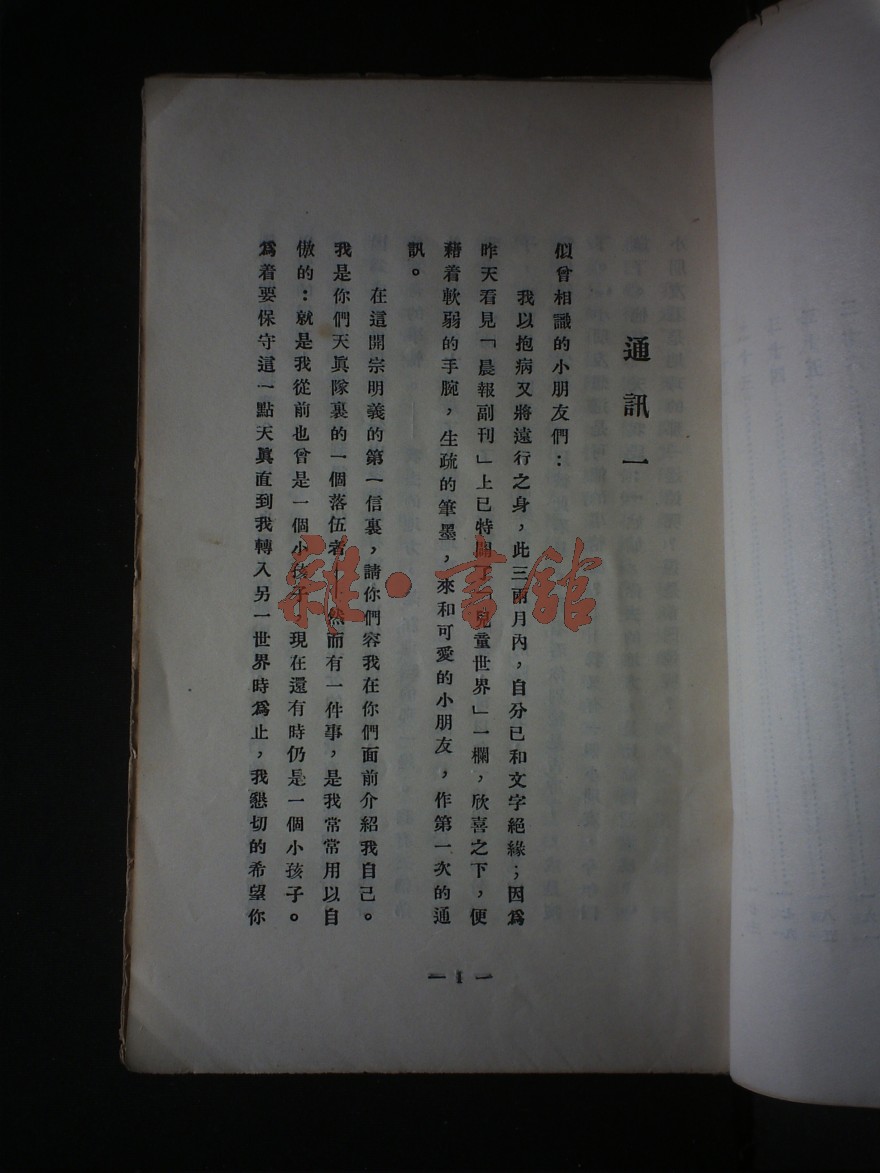 通訊一
似曾相識的小朋友們：
我以抱病又將遠行之身，此三兩月內，自分已和文字絕緣；因爲
昨天看見「晨報副刊」上已特闢了「兒童世界」一欄，欣喜之下，便
藉着軟弱的手腕，生疏的筆墨，來和可愛的小朋友，作第一次的通
訊。
在這開宗明義的第一信裏，請你們容我在你們面前介紹我自己。
我是你們天眞隊裏的一個落伍者——然而有一件事，是我常常用以自
傲的：就是我從前也曾是一個小孩子，現在還有時仍是一個小孩子。
爲着要保守這一點天眞直到我轉入另一世界時爲止，我懇切的希望你
— 1 —
雜·書館